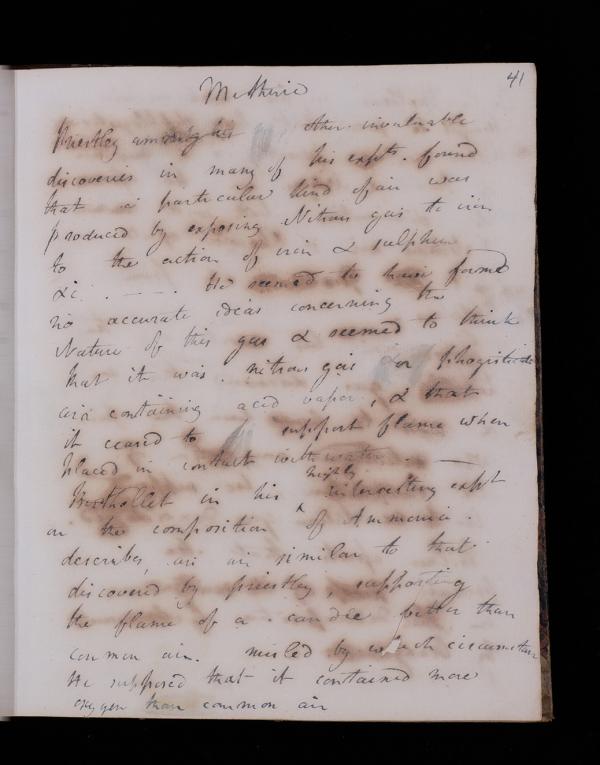 41
Priestley amongst his other invaluable
discoveries in many of his expts. found
that a particular kind of air was
produced by exposing Nitrous gas to iron
to the action of iron & sulphur
&c. —. — He seemed to have formed
no accurate ideas concerning the
Nature of this gas & seemed to think
that it was nitrous gas or phlogisticate
air containing acid vapor, & that
it ceased to support flame when
placed in contact with water. —
Berthollet in his highly interesting expt
on the composition of Ammonia.
describes, an air similar to that
discovered by priestley, supporting
the flame of a candle better than
common air. misled by which circumstance
He supposed that it contained more
oxygen than common air